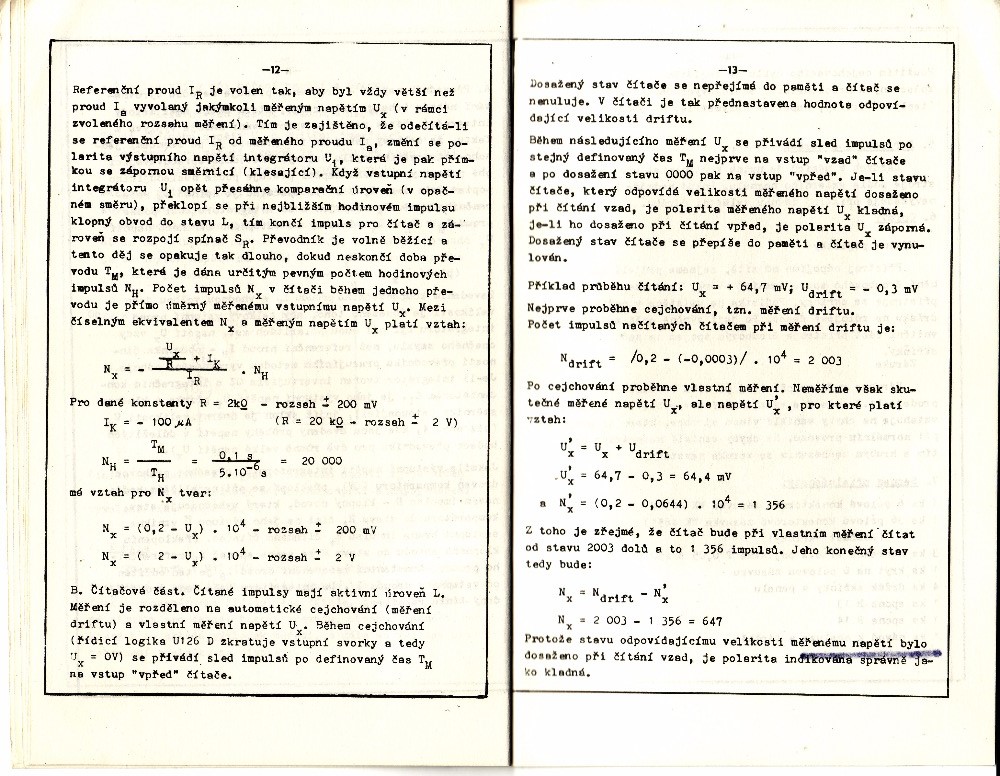 —12—
Referenční proud I_R je volen tak, aby byl vždy větší než
proud I_s vyvolaný jakýmkoli měřeným napětím U_x (v rámci
zvoleného rozsahu měření). Tím je zajištěno, že odečítá-li
se referenční proud I_R od měřeného proudu I_s, změní se po-
larita výstupního napětí integrátoru U_i, která je pak přím-
kou se zápornou směrnicí (klesající). Když vstupní napětí
integrátoru U_i opět přesáhne komparační úroveň (v opač-
ném směru), překlopí se při nejbližším hodinovém impulsu
klopný obvod do stavu L, tím končí impuls pro čítač a zá-
roveň se rozpojí spínač S_R. Převodník je volně běžící a
tento děj se opakuje tak dlouho, dokud neskončí doba pře-
vodu T_M, která je dána určitým pevným počtem hodinových
impulsů N_H. Počet impulsů N_x v čítači během jednoho pře-
vodu je přímo úměrný měřenému vstupnímu napětí U_x. Mezi
číselným ekvivalentem N_x a měřeným napětím U_x platí vztah:
U_x
R + I_K
N_x = - . N_H
I_R
Pro dané konstanty R = 2kΩ - rozsah ± 200 mV
I_K = - 100 µA (R = 20 kΩ - rozsah ± 2 V)
T_M 0,1 s
N_H = = = 20 000
T_H 5.10^-6 s
má vztah pro N_x tvar:
N_x = (0,2 - U_x) . 10^4 - rozsah ± 200 mV
N_x = ( 2 - U_x) . 10^4 - rozsah ± 2 V
B. Čítačová část. Čítané impulsy mají aktivní úroveň L.
Měření je rozděleno na automatické cejchování (měření
driftu) a vlastní měření napětí U_x. Během cejchování
(řídicí logika U126 D zkratuje vstupní svorky a tedy
U_x = 0V) se přivádí sled impulsů po definovaný čas T_M
na vstup "vpřed" čítače.
—13—
Dosažený stav čítače se nepřejímá do paměti a čítač se
nenuluje. V čítači je tak přednastavena hodnota odpoví-
dající velikosti driftu.
Během následujícího měření U_x se přivádí sled impulsů po
stejný definovaný čas T_M nejprve na vstup "vzad" čítače
a po dosažení stavu 0000 pak na vstup "vpřed". Je-li stavu
čítače, který odpovídá velikosti měřeného napětí dosaženo
při čítání vzad, je polarita měřeného napětí U_x kladná,
je-li ho dosaženo při čítání vpřed, je polarita U_x záporná.
Dosažený stav čítače se přepíše do paměti a čítač je vynu-
lován.
Příklad průběhu čítání: U_x = + 64,7 mV; U_drift = - 0,3 mV
Nejprve proběhne cejchování, tzn. měření driftu.
Počet impulsů načítaných čítačem při měření driftu je:
N_drift = /0,2 - (-0,0003)/ . 10^4 = 2 003
Po cejchování proběhne vlastní měření. Neměříme však sku-
tečné měřené napětí U_x, ale napětí U'_x , pro které platí
vztah:
U'_x = U_x + U_drift
U'_x = 64,7 - 0,3 = 64,4 mV
a N'_x = (0,2 - 0,0644) . 10^4 = 1 356
Z toho je zřejmé, že čítač bude při vlastním měření čítat
od stavu 2003 dolů a to 1 356 impulsů. Jeho konečný stav
tedy bude:
N_x = N_drift - N'_x
N_x = 2 003 - 1 356 = 647
Protože stavu odpovídajícímu velikosti měřenému napětí bylo
dosaženo při čítání vzad, je polarita indikována správně ja-
ko kladná.